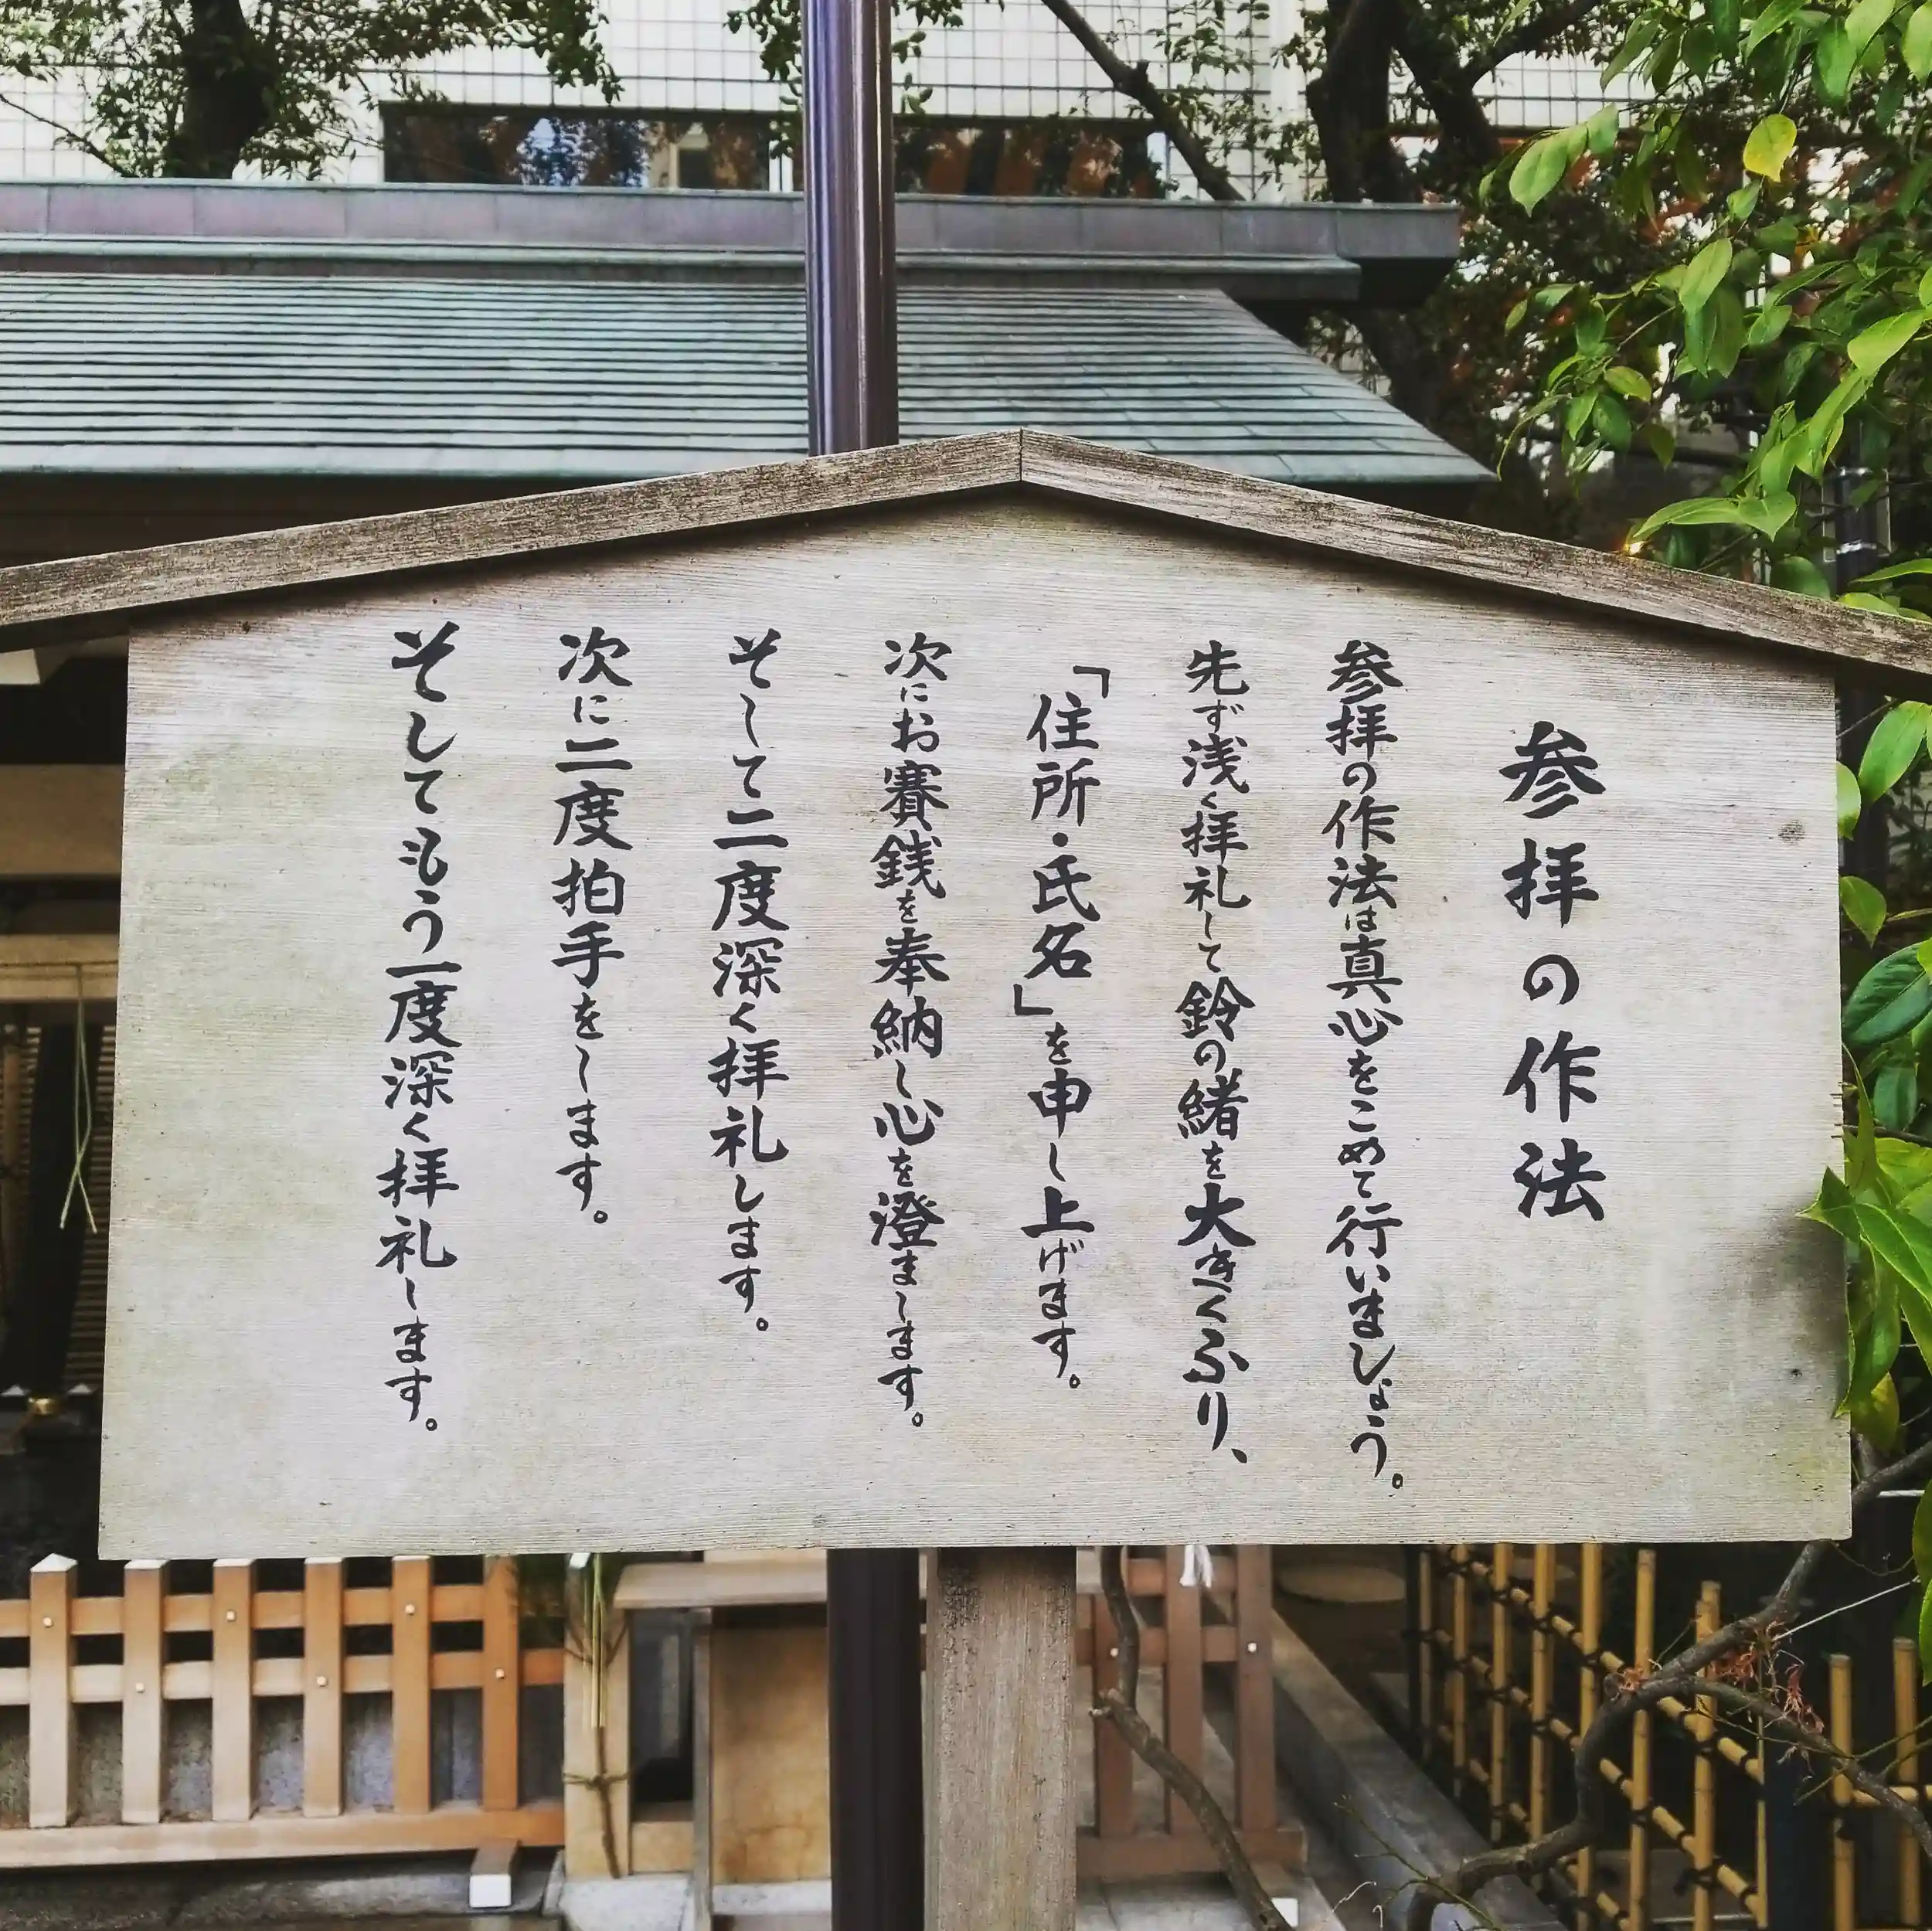 参拝の作法
参拝の作法は真心をこめて行いましょう。
先ず浅く拝礼して鈴の緒を大きくふり、
「住所・氏名」を申し上げます。
次にお賽銭を奉納し心を澄まします。
そして二度深く拝礼します。
次に二度拍手をします。
そしてもう一度深く拝礼します。